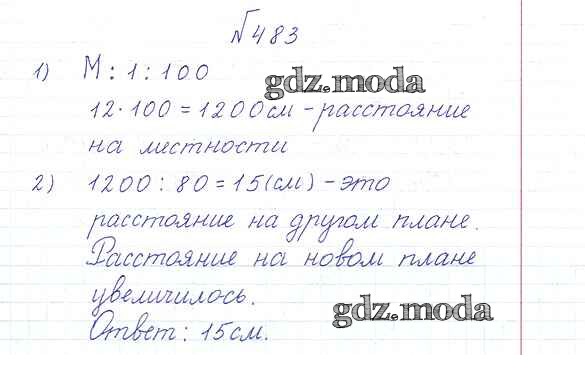 №483
1) М : 1 : 100
gdz.moda
12·100=1200см - расстояние
на местности
2) 1200 : 80 = 15(см) - это
расстояние на другом плане.
Расстояние на новом плане
увеличилось.
gdz.moda
Ответ: 15см.